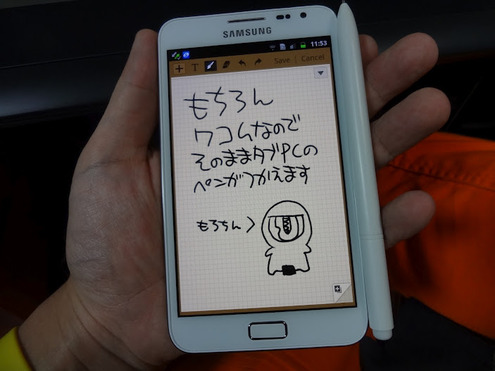 SAMSUNG
11:53
T
Save | Cancel
もちろん
ワコムなので
そのままタブPCの
ペンがつかえます
もろちん >